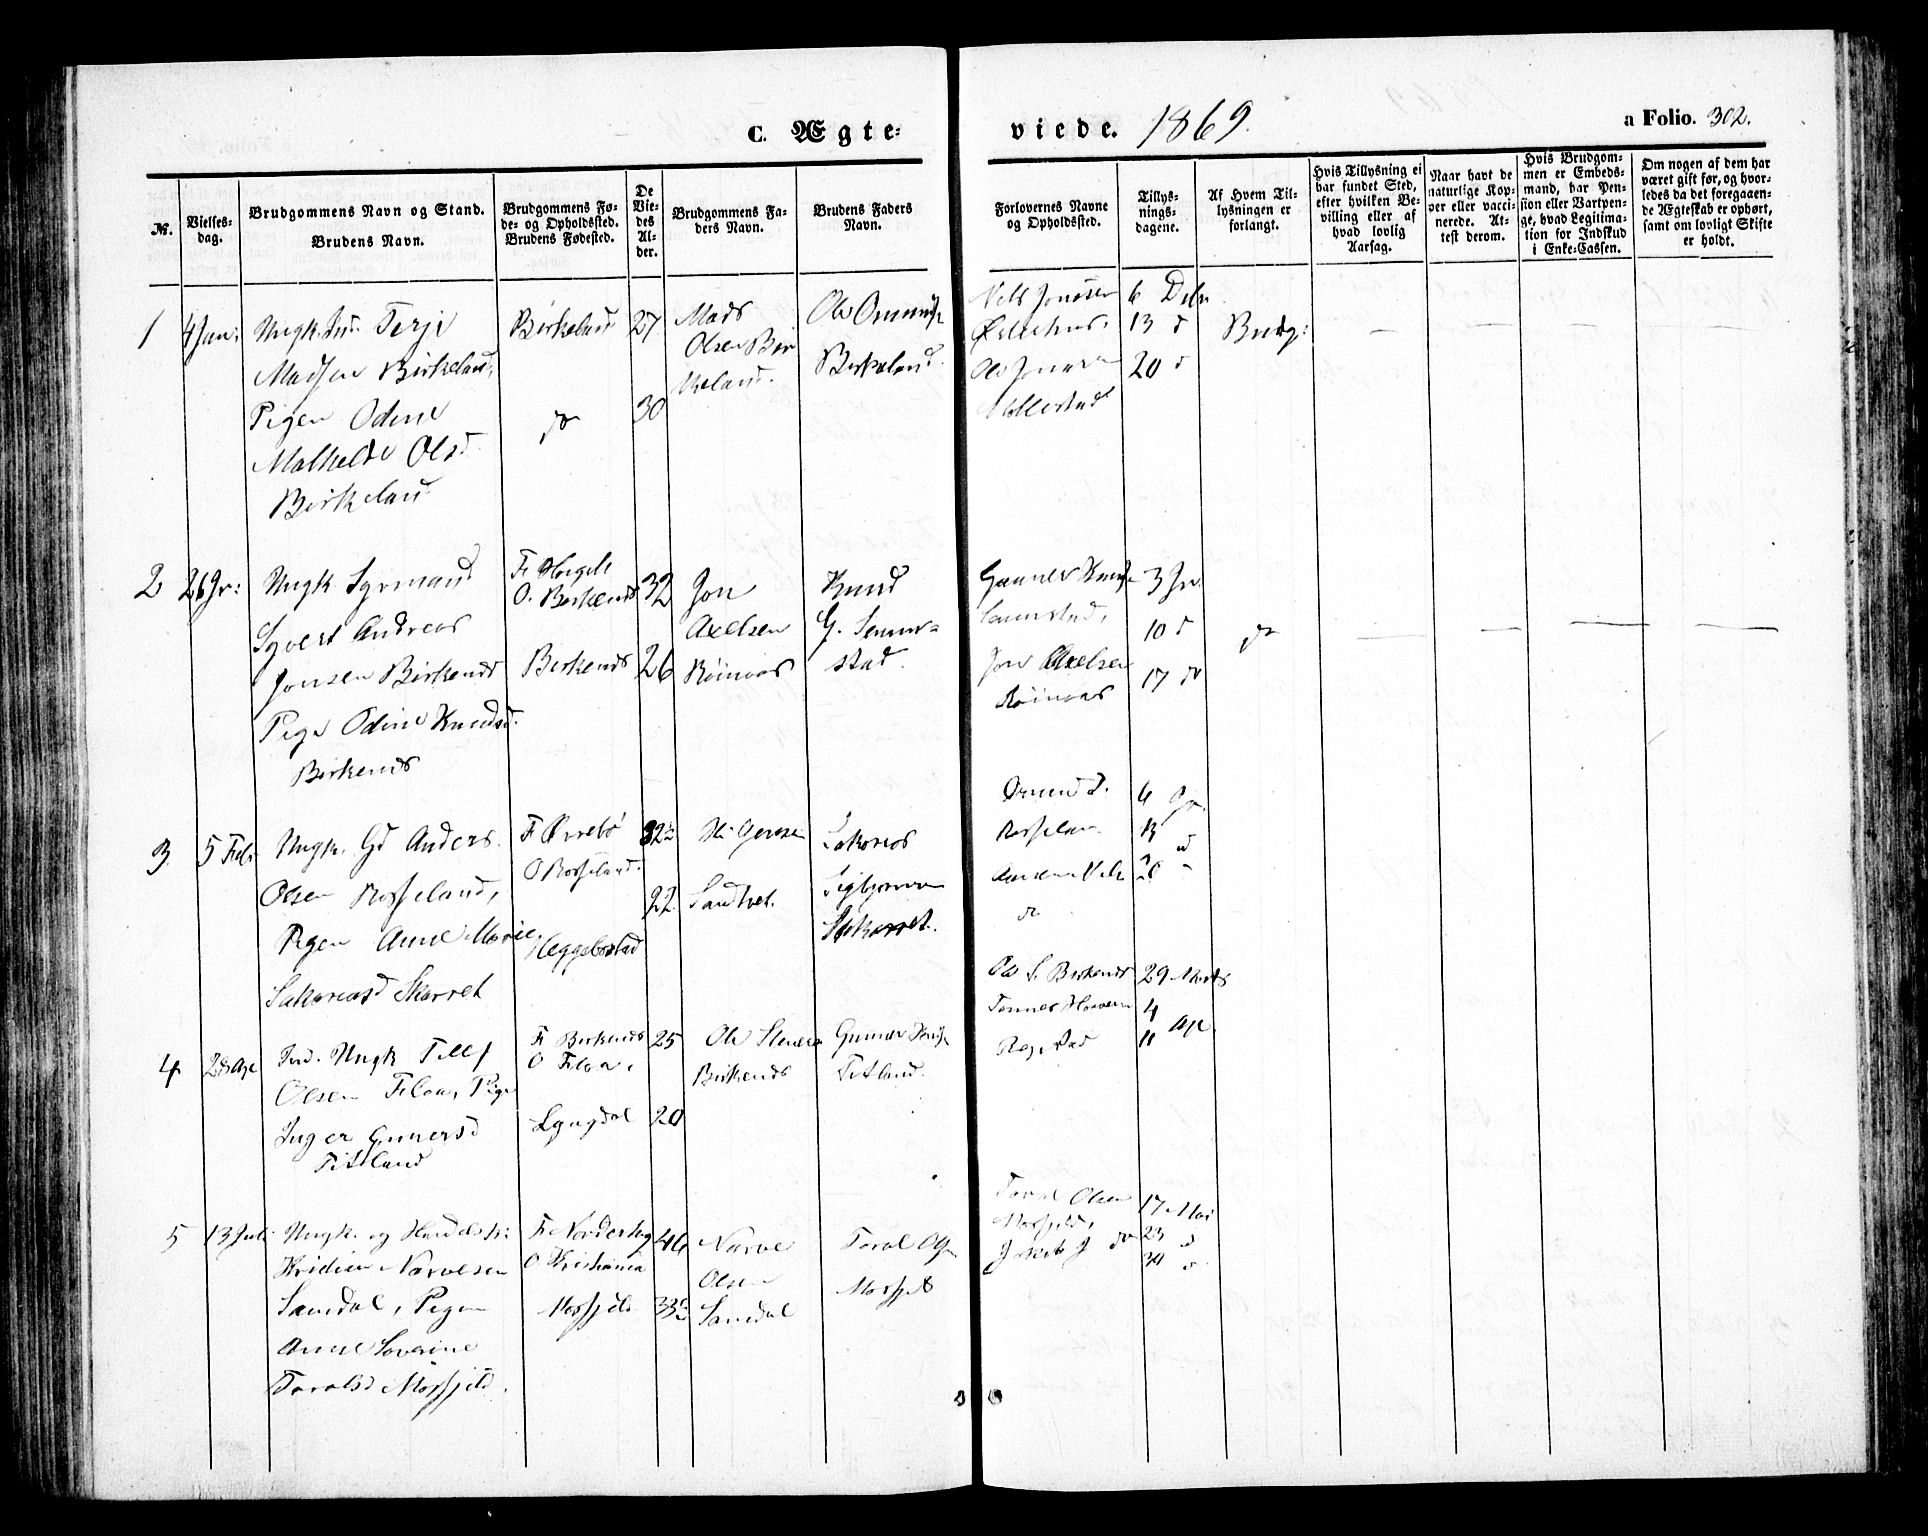 C. Ægte-
viede. 1869.
a Folio. 302.
№.
Vielses-
dag.
Brudgommens Navn og Stand.
Brudens Navn.
Brudgommens Fø-
de- og Opholdssted.
Brudens Fødested.
De
Vie-
des
Al-
der.
Brudgommens Fa-
ders Navn.
Brudens Faders
Navn.
Forlovernes Navne
og Opholdssted.
Tillys-
nings-
dagene.
Af Hvem Til-
lysningen er
forlangt.
Hvis Tillysning ei
har fundet Sted,
efter hvilken Be-
villing eller af
hvad lovlig
Aarsag.
Naar havt de
naturlige Kop-
per eller vacci-
nerede. At-
test derom.
Hvis Brudgom-
men er Embeds-
mand, har Pen-
sion eller Vartpen-
ge, hvad Legitima-
tion for Indskud
i Enke-Cassen.
Om nogen af dem har
været gift før, og hvor-
ledes da det foregaaen-
de Ægteskab er ophørt,
samt om lovligt Skifte
er holdt.
1 4 Jan: Ungk. Ind. Terje
Madsen Birkeland,
Pigen Odine
Mathilde Olsd.
Birkeland
Birkeland
do
27
30
Mads
Olsen Bir
keland.
Ole
Birkeland.
Nels Jonasen
Ole Jonasen
6 Debr
13 d
20 d
Brudg:
2 26 Jr: Ungk Syvert Andreas
Jonsen Birkenes
Pige Odine Knudsd.
Birkenes
O. Birkenes
Birkenes
32
26
Jon
Axelsen
Røinaas
Knud
G. Senum-
stad.
Gunner
Jon Axelsen
Røinaas
3 Jr.
10 d
17 do
do
3 5 Febr Ungk. Gd Anders
Olsen Rosseland,
Pigen Anne Marie
Sakariasd Skarret
O Rosseland.
Heggebostad
32½
22
Sandvet.
Sakarias
Sigbjørnsen
Skarret.
Rosseland
do
6
13 d
20
4 28 Apr Ind. Ungk Tellef
Olsen Floa, Pige
Inger Gunnersd
Titland
F Birkenes
O Floa,
Lyngdal
25
20
Ole
Birkenes
Gunner
Titland.
Ole S. Birkenes
29 Marts
4
11 Apr
5 13 Juli Ungk. og Handelsk:
Kristian Narvesen
Samdal, Pigen
Anne Severine
Toralsd Mosfjeld.
F Norderhog
O Kristiania
Mosfjeld
46
33½
Narve
Olsen
Samdal
Toral Ols
Mosfjeld
Toral Olsen
Mosfjeld,
do
17 Mai
23 d
30 d